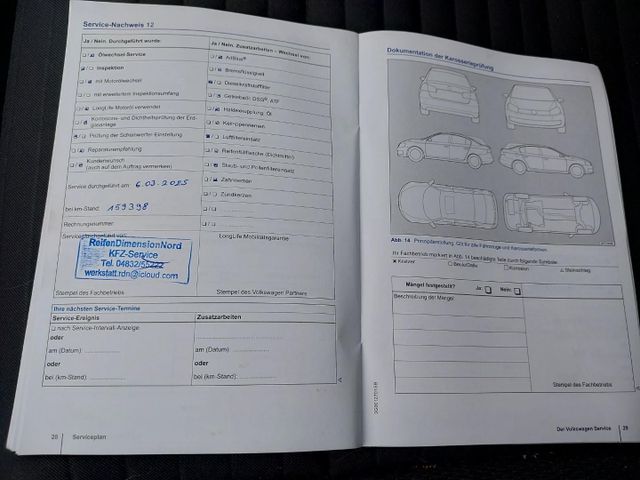 Service-Nachweis 12
Ja / Nein. Durchgeführt wurde:
Ölwechsel-Service
Inspektion
mit Motorölwechsel
mit erweitertem Inspektionsumfang
LongLife Motoröl verwendet
Korrosions- und Dichtheitsprüfung der Erdgasanlage
Prüfung der Scheinwerfer-Einstellung
Reparaturempfehlung
Kundenwunsch
(auch auf dem Auftrag vermerken)
Service durchgeführt am: 6.03.2025
bei km-Stand: 159398
Rechnungsnummer:
Servicetechniker
ReifenDimensionNord
KFZ-Service
Tel. 04832/55222
werkstatt.rdn@icloud.com
Stempel des Fachbetriebs
Ja / Nein. Zusatzarbeiten – Wechsel von:
AdBlue®
Bremsflüssigkeit
Dieselkraftstofffilter
Getriebeöl: DSG®, ATF
Haldexkupplung: Öl
Keilrippenriemen
Luftfiltereinsatz
Reifenfüllflasche (Dichtmittel)
Staub- und Pollenfiltereinsatz
Zahnriemen
Zündkerzen
LongLife Mobilitätsgarantie
Stempel des Volkswagen Partners
Ihre nächsten Service-Termine
Service-Ereignis
nach Service-Intervall-Anzeige:
oder
am (Datum):
oder
bei (km-Stand):
Zusatzarbeiten
am (Datum):
oder
bei (km-Stand):
28 Serviceplan
Dokumentation der Karosserieprüfung
Abb. 14 Prinzipdarstellung: Gilt für alle Fahrzeuge und Karosserieformen.
Ihr Fachbetrieb markiert in Abb. 14 beschädigte Teile durch folgende Symbole:
Kratzer Beule/Delle Korrosion Steinschlag
Mängel festgestellt? Ja: Nein:
Beschreibung der Mängel:
Stempel des Fachbetriebs
Der Volkswagen Service 29